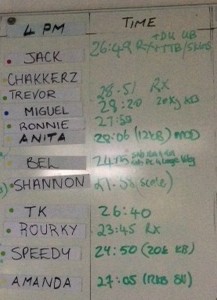 4 PM TIME
+DU UB
JACK 26:49 RX
CHAKKERZ
TREVOR 28:51 RX
MIGUEL 29:20 20kg KB
RONNIE 27:50
ANITA 28:06 (12KB) MOD
BEL
SHANNON
TK 26:40
ROURKY 23:45 RX
SPEEDY 24:50 (20k KB)
AMANDA 27:05